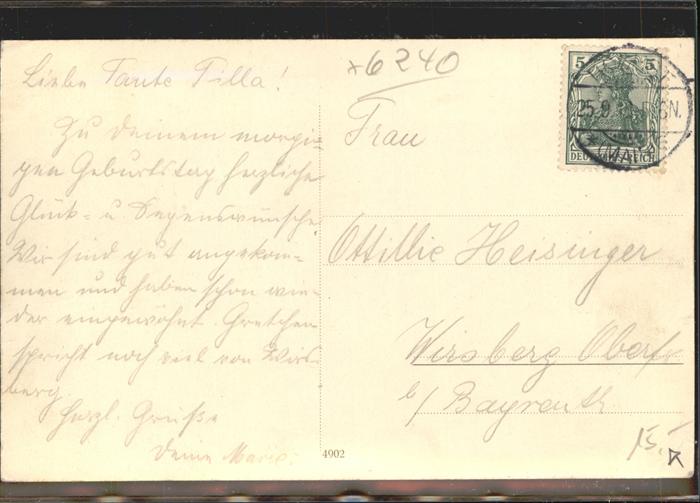 Liebe Tante Tilla!
Zu deinem morgi-
gen Geburtstag herzliche
Glück- u Segenswünsche.
Wir sind gut angekom-
men und haben schon wie-
der eingewöhnt. Gretchen
spricht noch viel von Wirs-
berg.
Herzl. Grüße
Deine Marie.
*6240
Frau
Ottillie Heisinger
Wirsberg Oberf.
b/ Bayreuth
15.-
4902
5 5
DEUTSCHES REICH
25.9. 8N.
(MAIN)